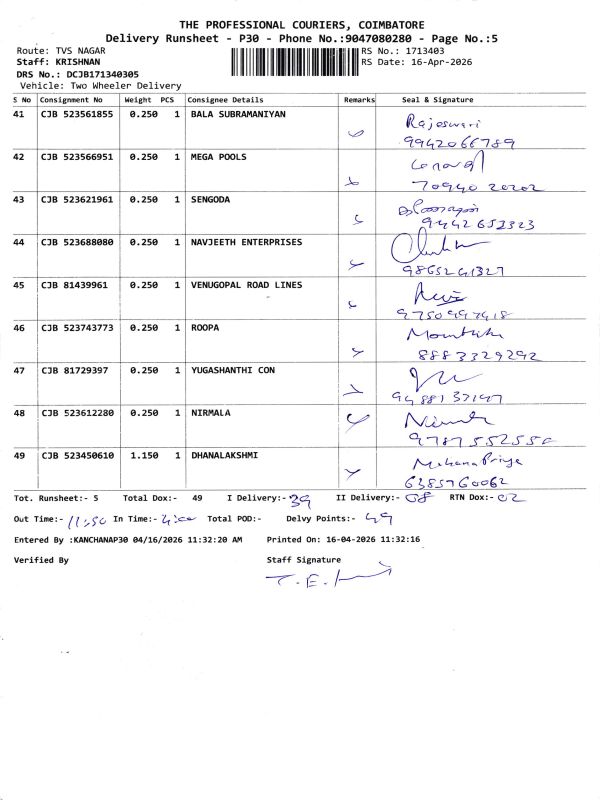 THE PROFESSIONAL COURIERS, COIMBATORE
Delivery Runsheet - P30 - Phone No.:9047080280 - Page No.:5
Route: TVS NAGAR RS No.: 1713403
Staff: KRISHNAN RS Date: 16-Apr-2026
DRS No.: DCJB171340305
Vehicle: Two Wheeler Delivery
S No Consignment No Weight PCS Consignee Details Remarks Seal & Signature
41 CJB 523561855 0.250 1 BALA SUBRAMANIYAN Rajeswari
9942066789
42 CJB 523566951 0.250 1 MEGA POOLS
70940 20202
43 CJB 523621961 0.250 1 SENGODA
9442652323
44 CJB 523688080 0.250 1 NAVJEETH ENTERPRISES
9865241327
45 CJB 81439961 0.250 1 VENUGOPAL ROAD LINES
9750997418
46 CJB 523743773 0.250 1 ROOPA
8883329292
47 CJB 81729397 0.250 1 YUGASHANTHI CON
9488137147
48 CJB 523612280 0.250 1 NIRMALA
978755255
49 CJB 523450610 1.150 1 DHANALAKSHMI Mohana Priya
6385760062
Tot. Runsheet:- 5 Total Dox:- 49 I Delivery:- 39 II Delivery:- 08 RTN Dox:- 02
Out Time:- 11:50 In Time:- 4:00 Total POD:- Delvy Points:- 49
Entered By :KANCHANAP30 04/16/2026 11:32:20 AM Printed On: 16-04-2026 11:32:16
Verified By Staff Signature